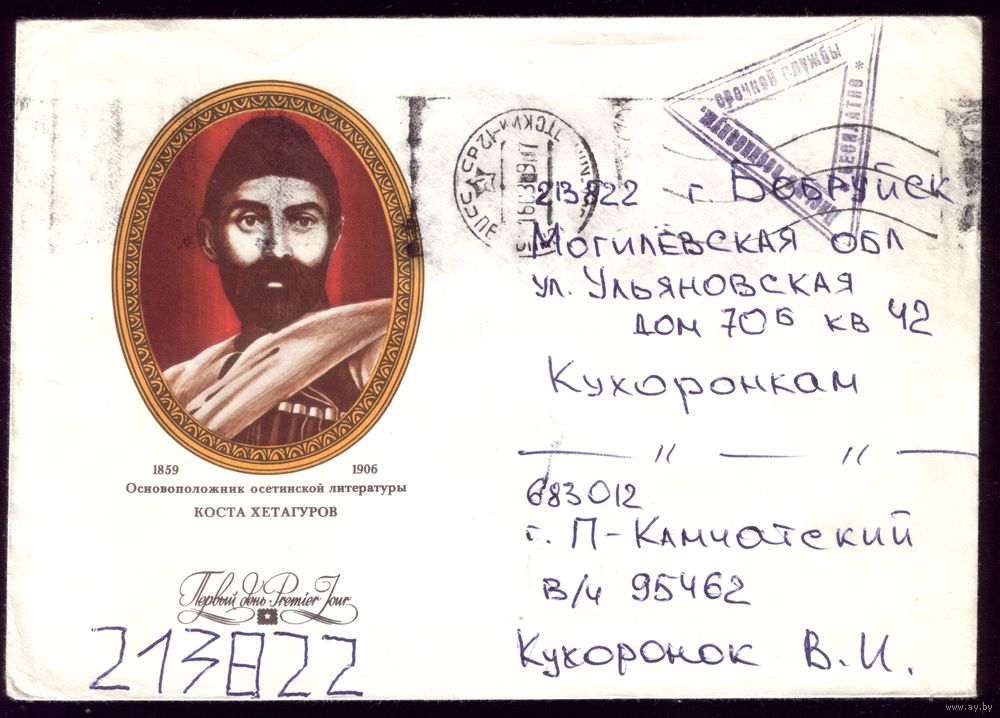 срочной службы
Военнослужащего
БЕСПЛАТНО *
213822 г. Бобруйск
Могилёвская обл
ул. Ульяновская
дом 70Б кв 42
Кухоронкам
— 〃 — 〃 —
683012
г. П-Камчатский
в/ч 95462
Кухоронок В.И.
1859 1906
Основоположник осетинской литературы
КОСТА ХЕТАГУРОВ
Первый день · Premier Jour
213822
www.ay.by